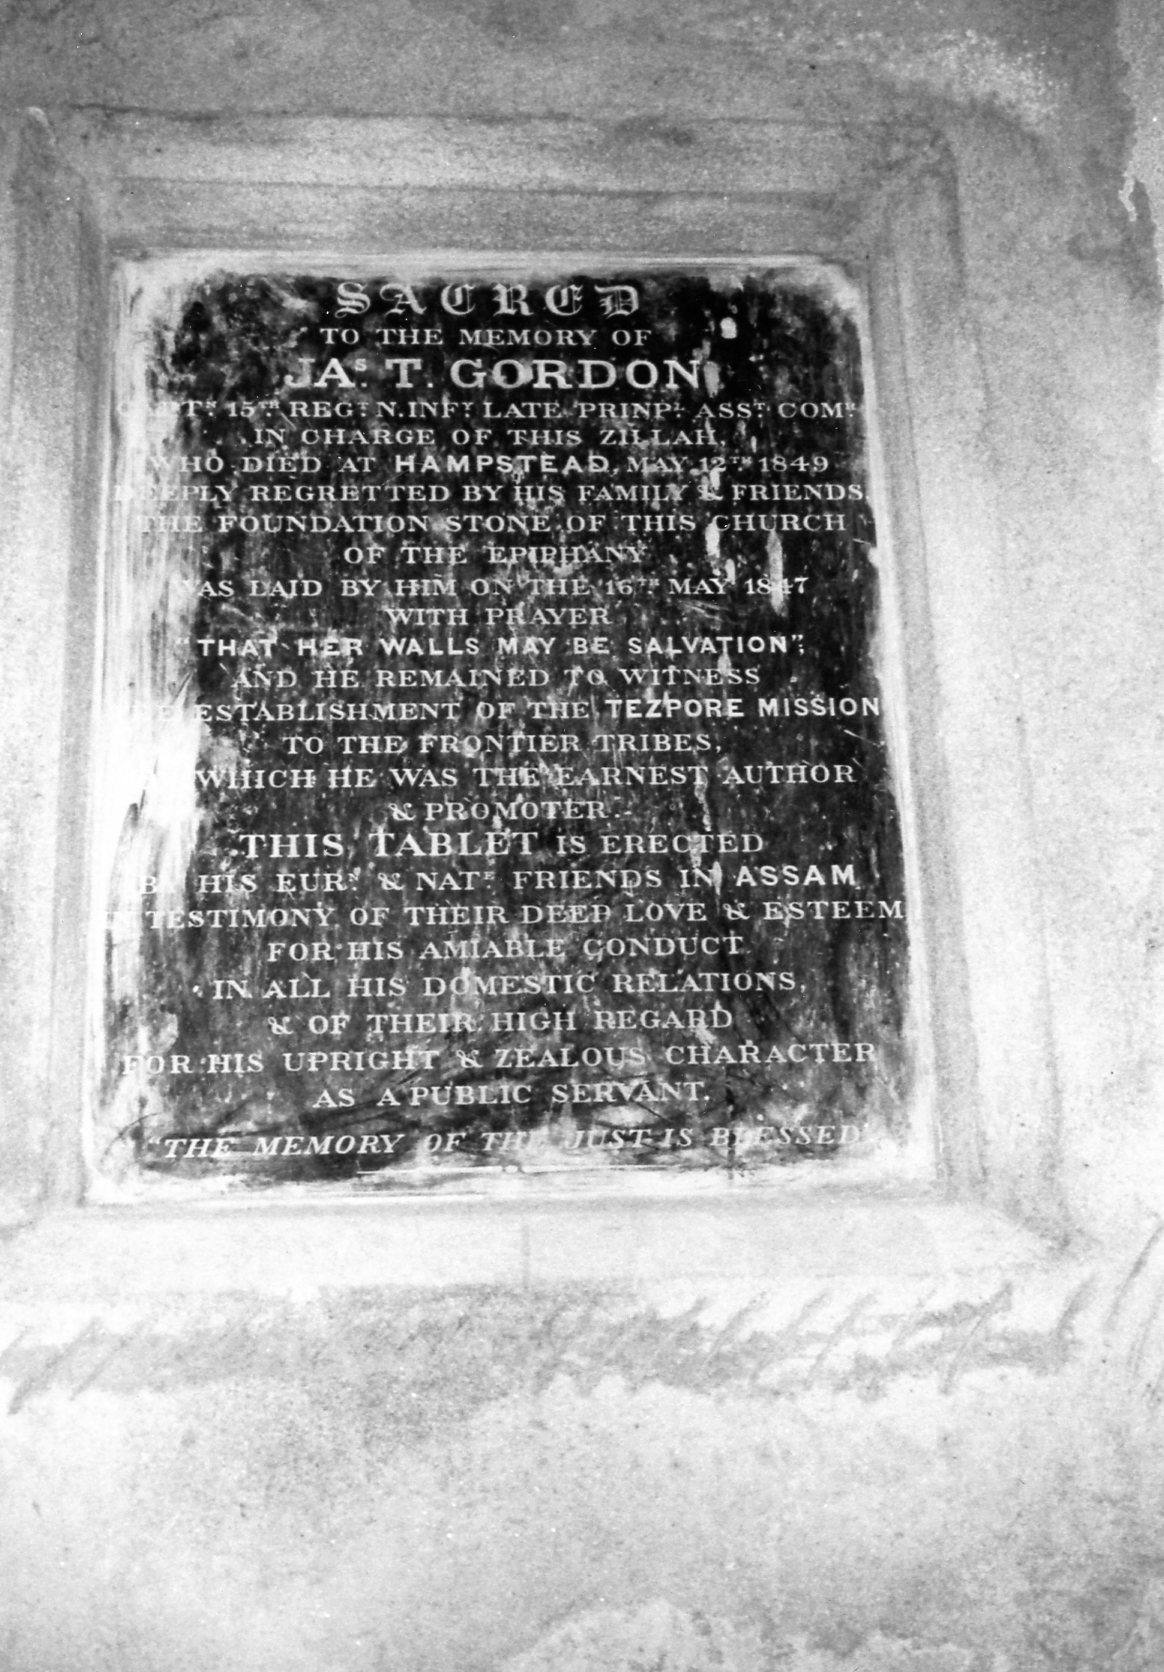 SACRED
TO THE MEMORY OF
JAS. T. GORDON,
15TH REGT. N. INFY. LATE PRINPL. ASST. COMR.
IN CHARGE OF THIS ZILLAH,
WHO DIED AT HAMPSTEAD, MAY 12TH 1849
DEEPLY REGRETTED BY HIS FAMILY & FRIENDS.
THE FOUNDATION STONE OF THIS CHURCH
OF THE EPIPHANY
WAS LAID BY HIM ON THE 16TH MAY 1847
WITH PRAYER
"THAT HER WALLS MAY BE SALVATION";
AND HE REMAINED TO WITNESS
ESTABLISHMENT OF THE TEZPORE MISSION
TO THE FRONTIER TRIBES,
WHICH HE WAS THE EARNEST AUTHOR
& PROMOTER.
THIS TABLET IS ERECTED
BY HIS EURN. & NATE. FRIENDS IN ASSAM
IN TESTIMONY OF THEIR DEEP LOVE & ESTEEM
FOR HIS AMIABLE CONDUCT
IN ALL HIS DOMESTIC RELATIONS,
& OF THEIR HIGH REGARD
FOR HIS UPRIGHT & ZEALOUS CHARACTER
AS A PUBLIC SERVANT.
"THE MEMORY OF THE JUST IS BLESSED".